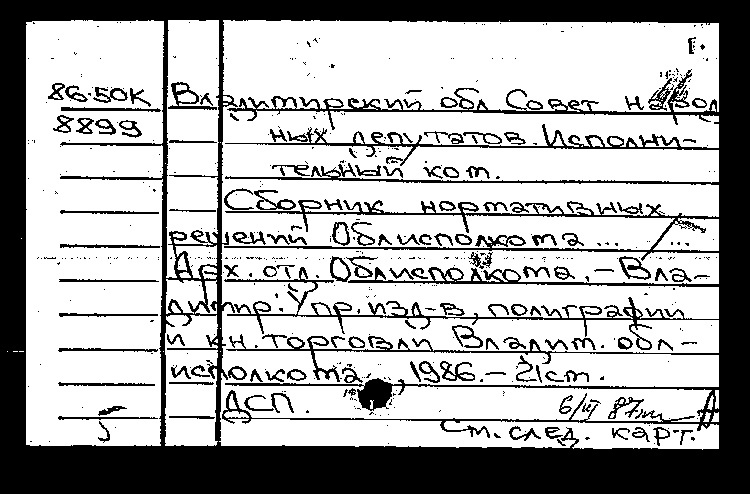 86-50К Владимирский обл Совет народ
8899 ных депутатов. Исполни-
тельный ком.
Сборник нормативных
решений Облисполкома ... ...
Арх. отл. Облисполкома. - Вла-
димир: Упр. изд-в, полиграфии
и кн. торговли Владим. обл-
исполкома, 1986. - 21 ст.
ДСП.
5 См. след. карт.